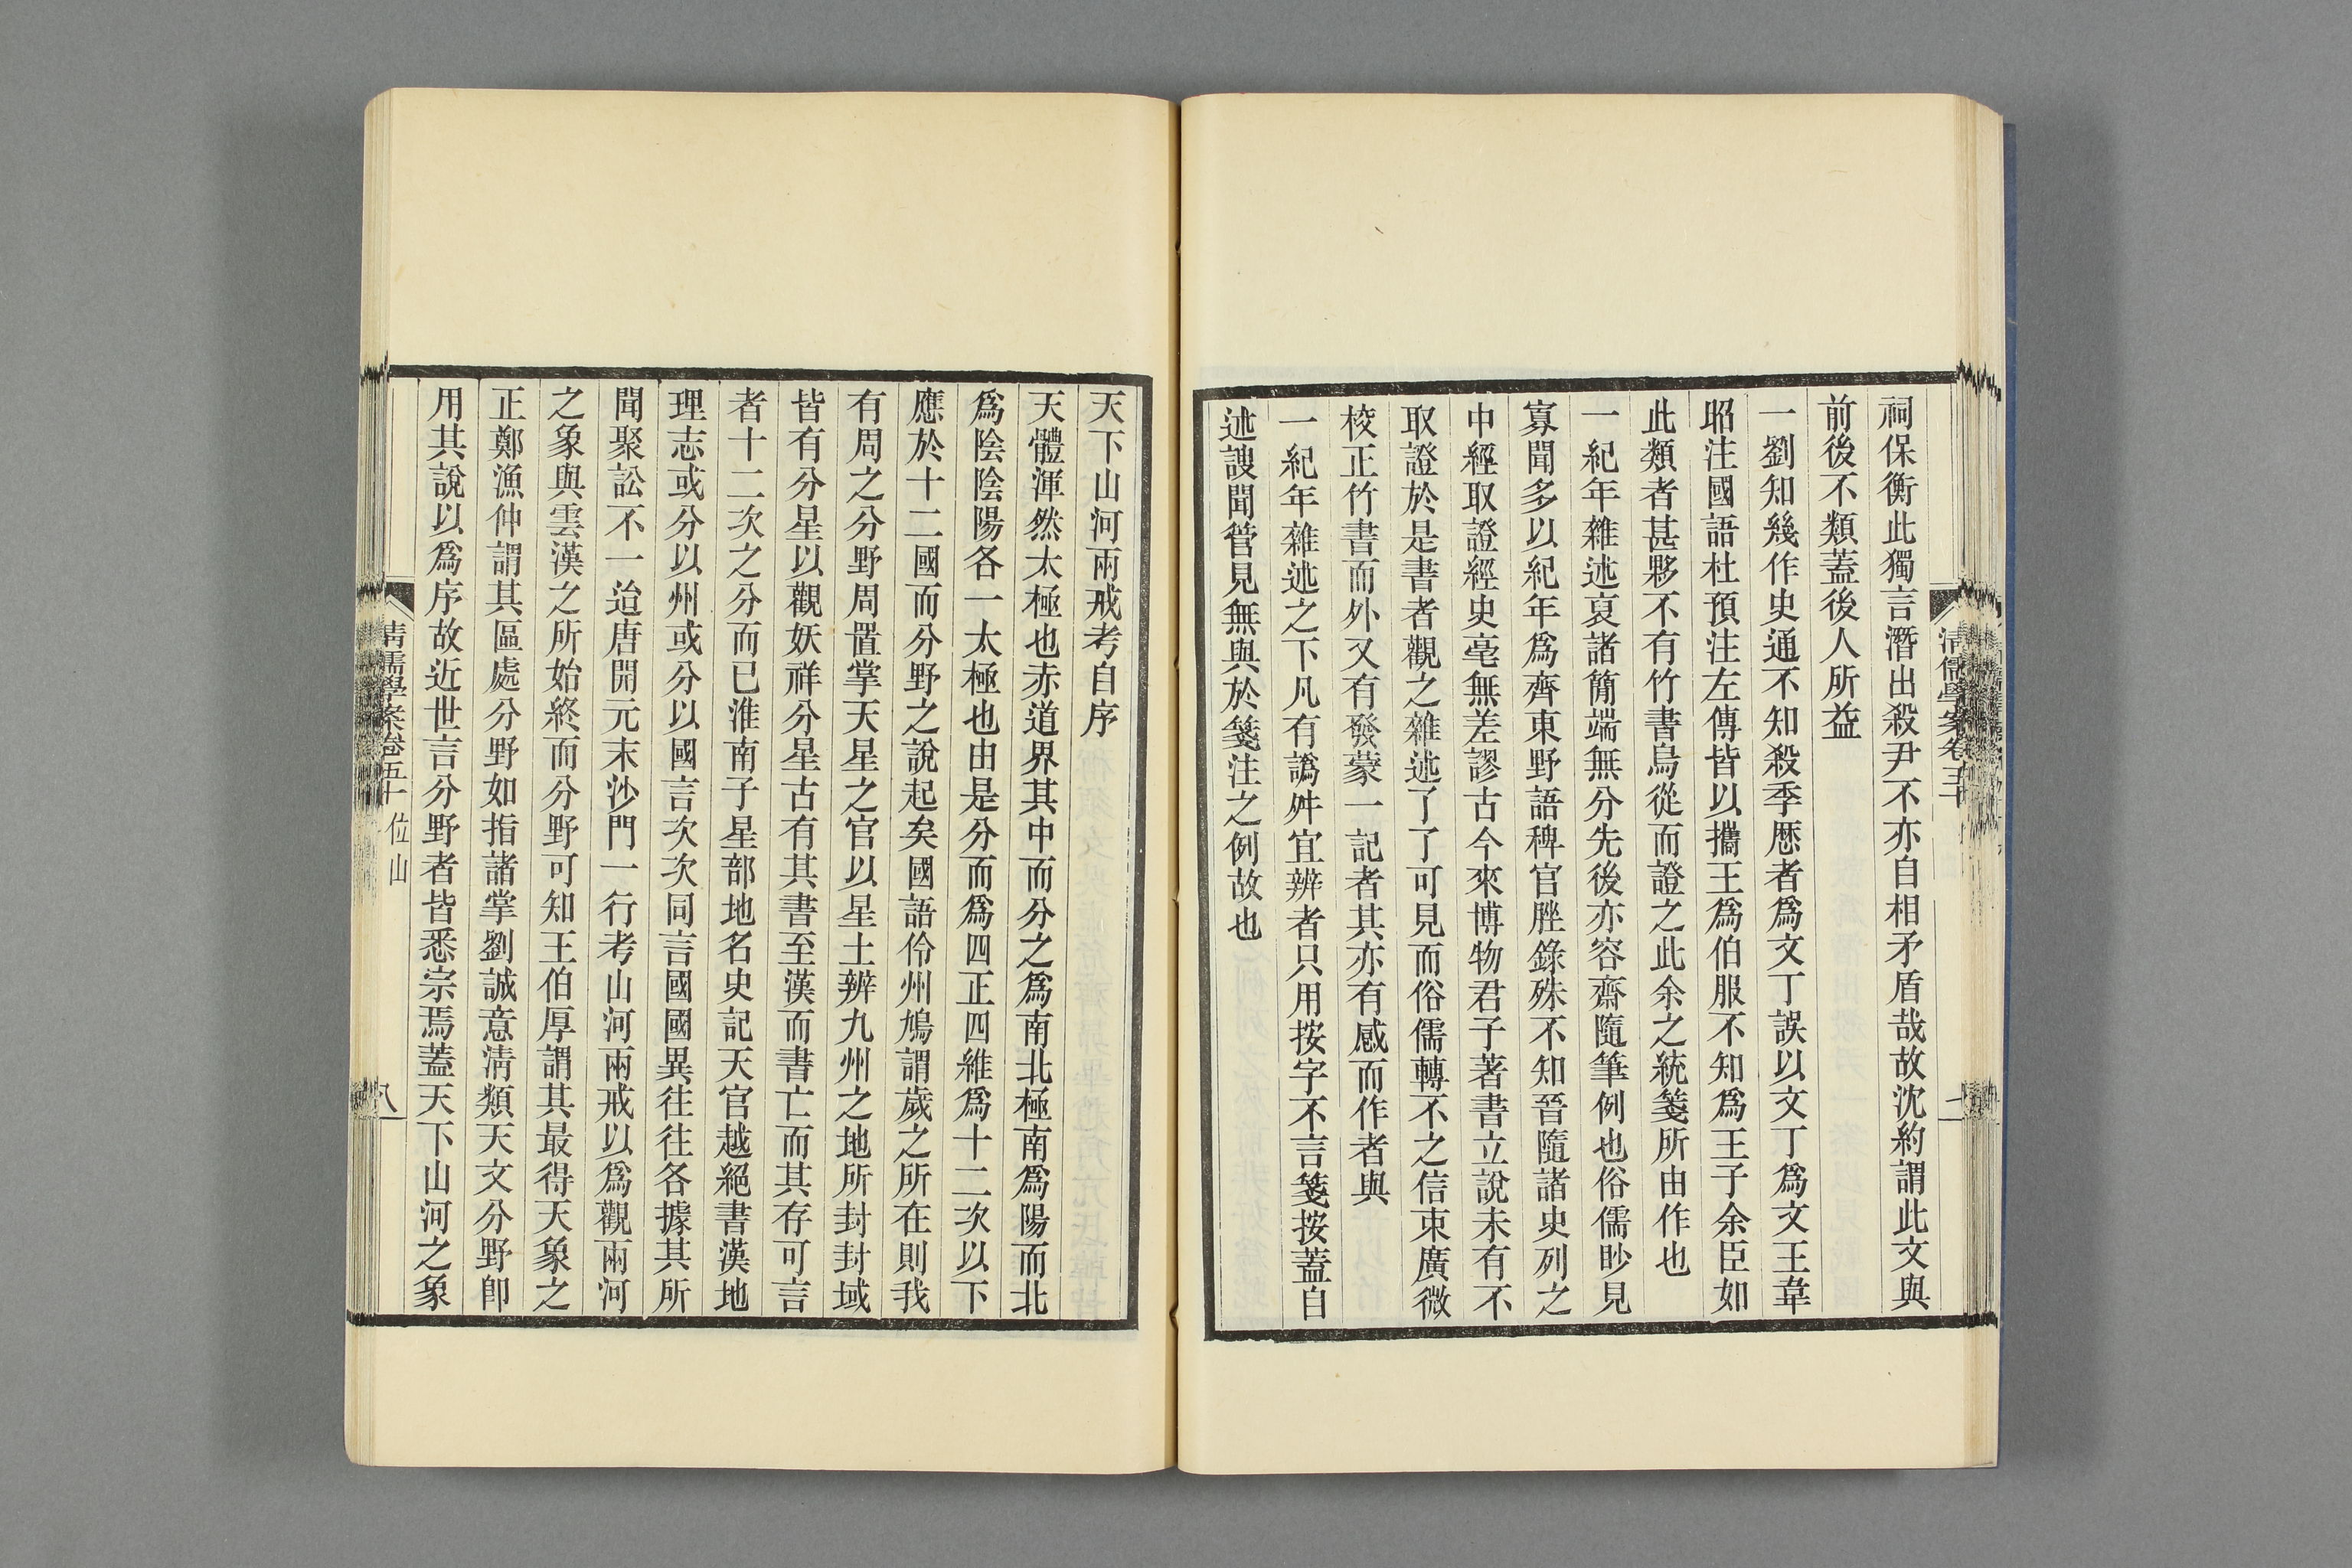 祠保衡此獨言潛出殺尹不亦自相矛盾哉故沈約謂此文與
前後不類蓋後人所益
一劉知幾作史通不知殺季歷者爲文丁誤以文丁爲文王韋
昭注國語杜預注左傳皆以攜王爲伯服不知爲王子余臣如
此類者甚夥不有竹書烏從而證之此余之統箋所由作也
一紀年雜述裒諸簡端無分先後亦容齋隨筆例也俗儒眇見
寡聞多以紀年爲齊東野語稗官脞錄殊不知晉隨諸史列之
中經取證經史毫無差謬古今來博物君子著書立說未有不
取證於是書者觀之雜述了了可見而俗儒轉不之信束廣微
校正竹書而外又有發蒙一記者其亦有感而作者與
一紀年雜述之下凡有譌舛宜辨者只用按字不言箋按蓋自
述謏聞管見無與於箋注之例故也
天下山河兩戒考自序
天體渾然太極也赤道界其中而分之爲南北極南爲陽而北
爲陰陰陽各一太極也由是分而爲四正四維爲十二次以下
應於十二國而分野之說起矣國語伶州鳩謂歲之所在則我
有周之分野周置掌天星之官以星土辨九州之地所封封域
皆有分星以觀妖祥分星古有其書至漢而書亡而其存可言
者十二次之分而已淮南子星部地名史記天官越絕書漢地
理志或分以州或分以國言次次同言國國異往往各據其所
聞聚訟不一迨唐開元末沙門一行考山河兩戒以爲觀兩河
之象與雲漢之所始終而分野可知王伯厚謂其最得天象之
正鄭漁仲謂其區處分野如指諸掌劉誠意清類天文分野卽
用其說以爲序故近世言分野者皆悉宗焉蓋天下山河之象
清儒學案卷五十 位山
八